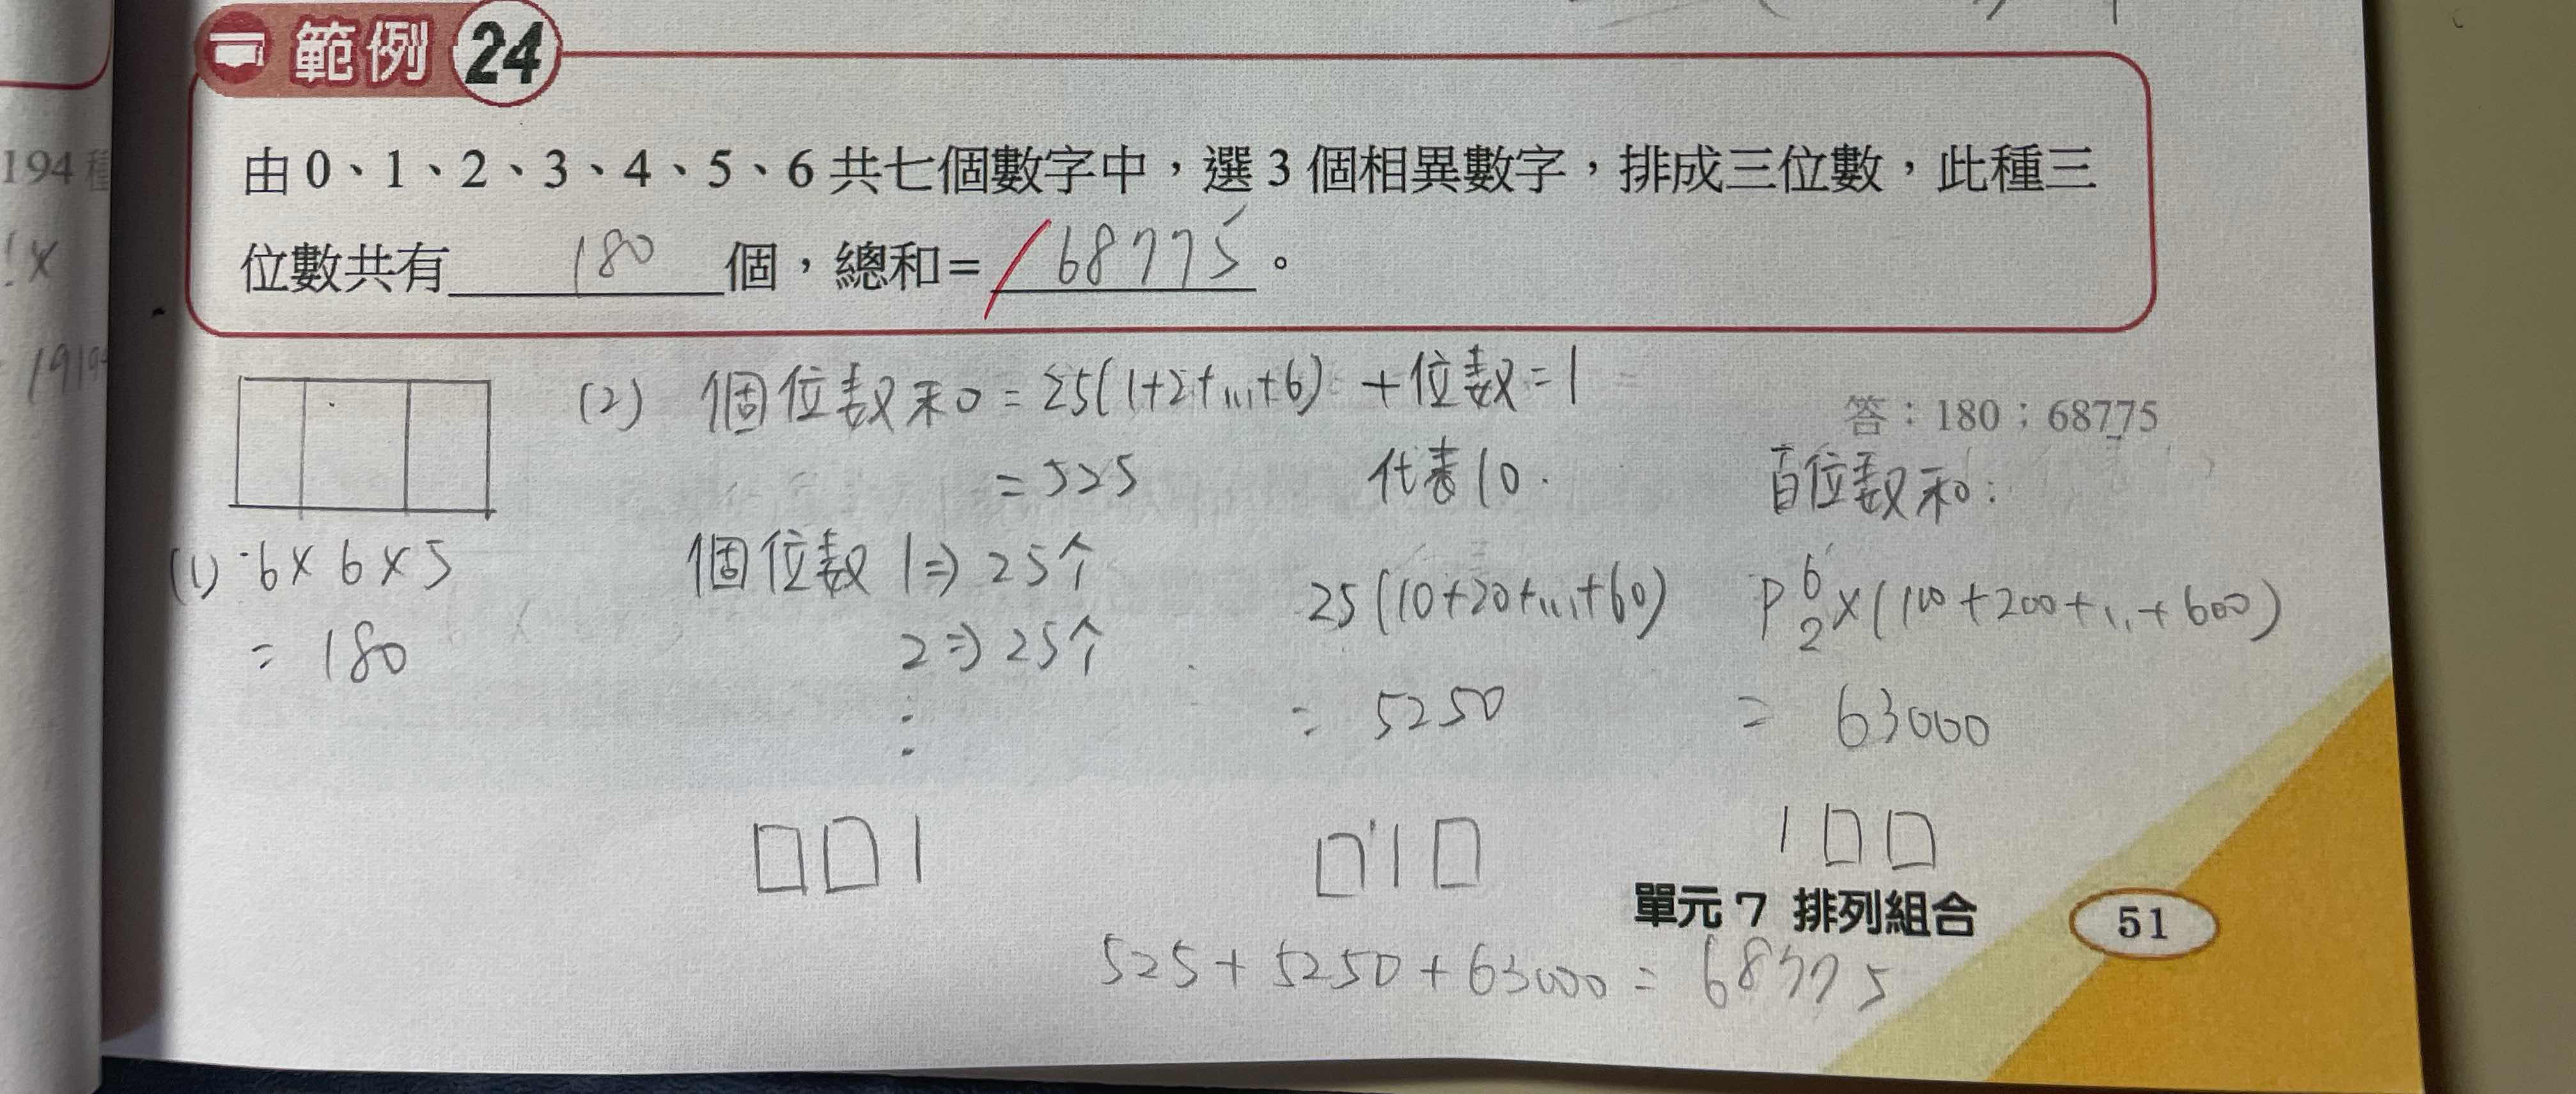 範例 24
由 0、1、2、3、4、5、6 共七個數字中，選 3 個相異數字，排成三位數，此種三
位數共有 180 個，總和= 68775 。
194 種
!x
答：180；68775
(1) 6×6×5
= 180
(2) 個位數和 = 25(1+2+...+6)
= 525
個位數 1⇒25个
2⇒25个
⋮
□□1
十位數=1
代表10.
25(10+20+...+60)
= 5250
□1□
百位數和:
P⁶₂×(100+200+...+600)
= 63000
1□□
525+5250+63000=68775
單元 7 排列組合
51